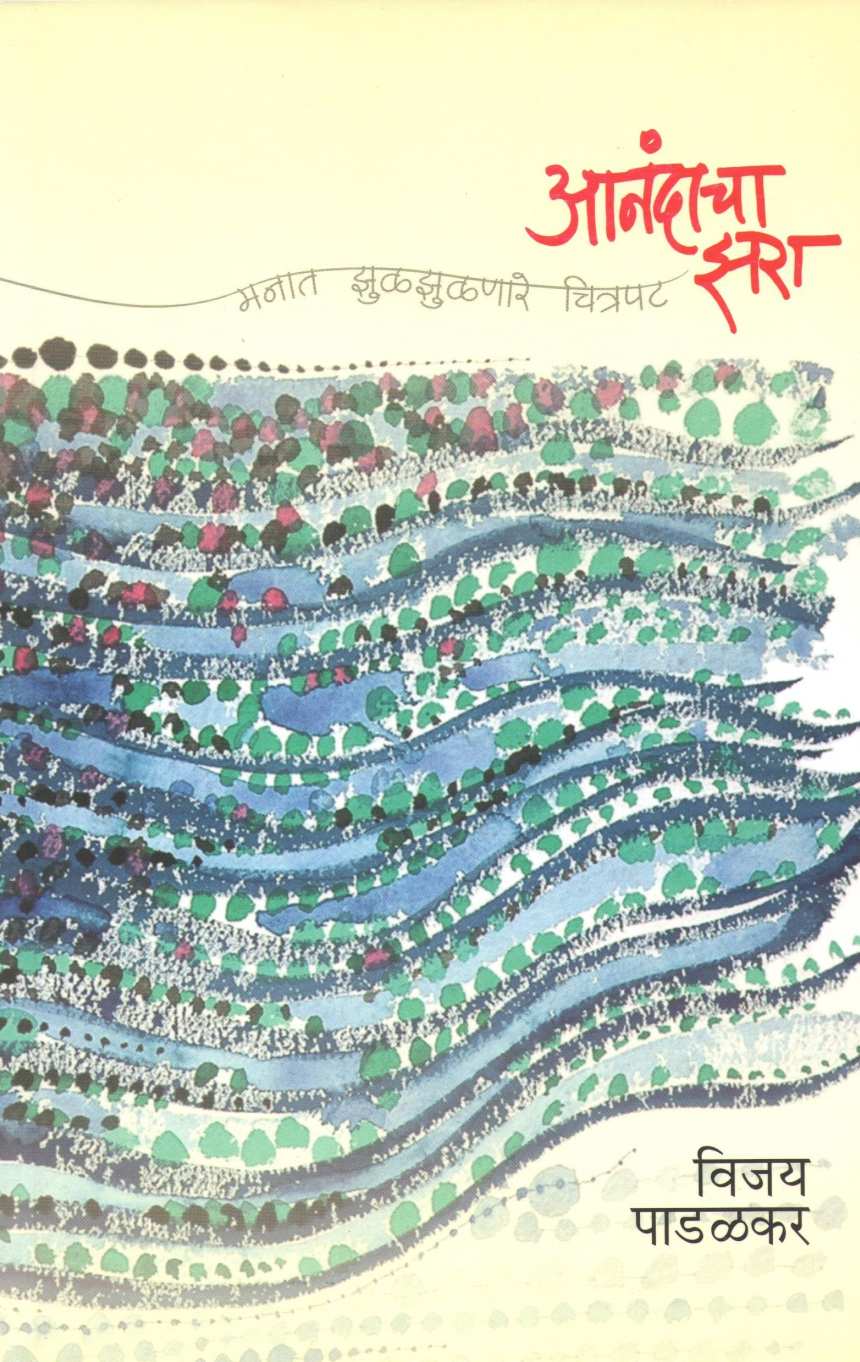 आनंदाचा
झरा
मनात झुळझुळणारे चित्रपट
विजय
पाडळकर